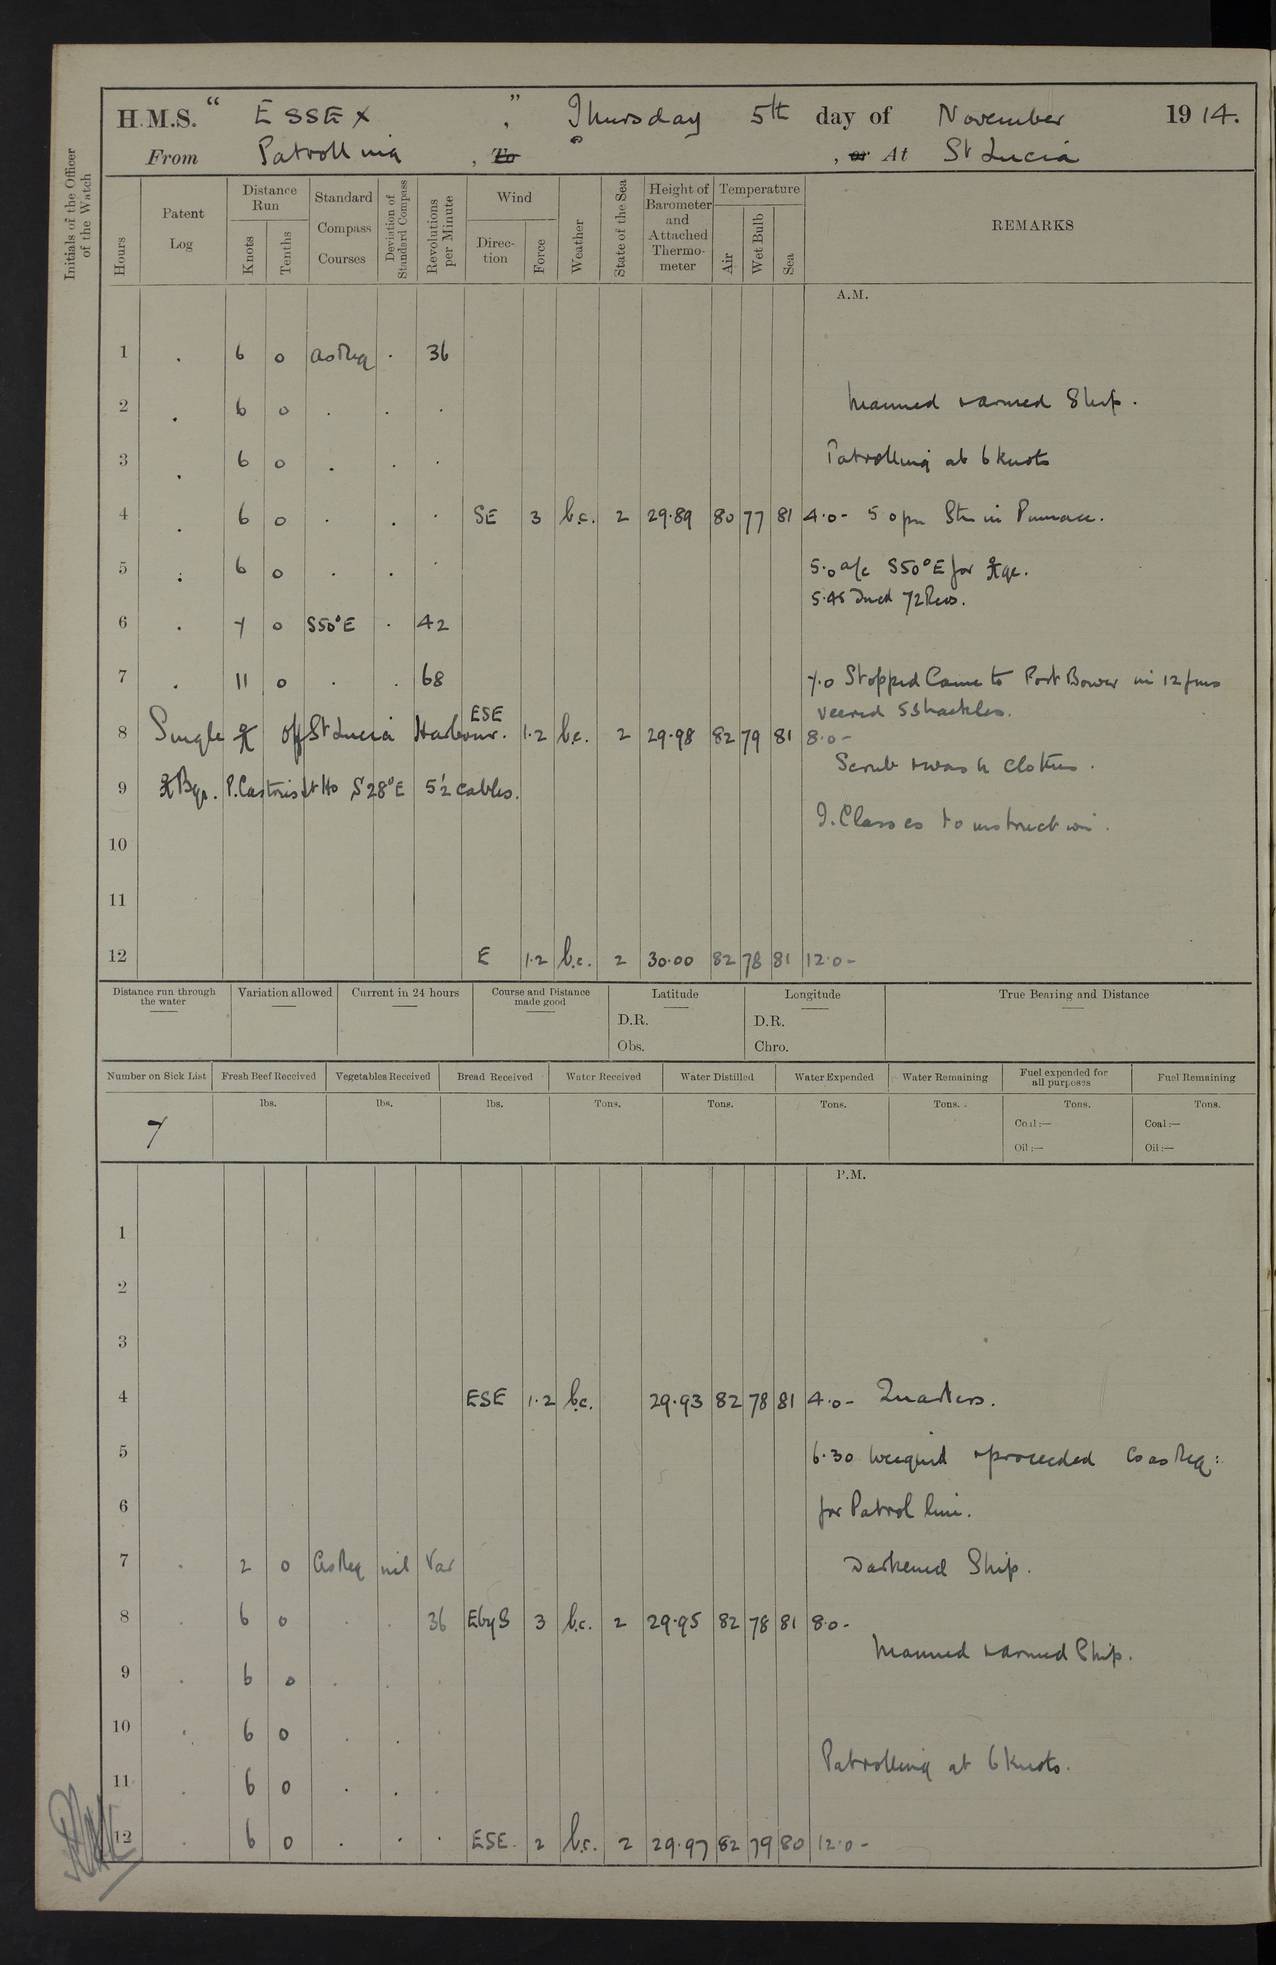 H.M.S. " ESSEX " , Thursday 5th day of November 1914.
From Patrolling , To , or At St Lucia
Initials of the Officer of the Watch
Hours
Patent Log
Distance Run
Knots
Tenths
Standard Compass Courses
Deviation of Standard Compass
Revolutions per Minute
Wind
Direction
Force
Weather
State of the Sea
Height of Barometer and Attached Thermometer
Temperature
Air
Wet Bulb
Sea
REMARKS
A.M.
1 . 6 0 as Req . 36
2 . 6 0 . . . Manned & armed Ship.
3 . 6 0 . . . Patrolling at 6 knots
4 . 6 0 . . . SE 3 b.c. 2 29.89 80 77 81 4.0- 5 opn Stn in Pinnace.
5 : 6 0 . . . 5.0 a/c S50°E for ⚓ge.
5.45 Incd 72 Revs.
6 . 7 0 S50°E . 42
7 . 11 0 . . 68 7.0 Stopped Came to Port Bower in 12 fms
veered 5 Shackles.
8 Single ⚓ off St Lucia Harbour. ESE 1.2 b.c. 2 29.98 82 79 81 8.0-
Scrub & wash clothes.
9 ⚓ Bgs. P. Castries Lt Ho S28°E 5½ cables.
I. Classes to instruction.
10
11
12 E 1.2 b.c. 2 30.00 82 78 81 12.0-
Distance run through the water
Variation allowed
Current in 24 hours
Course and Distance made good
Latitude
D.R.
Obs.
Longitude
D.R.
Chro.
True Bearing and Distance
Number on Sick List
Fresh Beef Received
Vegetables Received
Bread Received
Water Received
Water Distilled
Water Expended
Water Remaining
Fuel expended for all purposes
Fuel Remaining
7 lbs. lbs. lbs. Tons. Tons. Tons. Tons. Tons. Tons.
Coal:— Coal:—
Oil:— Oil:—
P.M.
1
2
3
4 ESE 1.2 b.c. 29.93 82 78 81 4.0- Quarters.
5 6.30 Weighed & proceeded Co as Req:
6 for Patrol line.
7 . 2 0 as Req nil Var Darkened Ship.
8 . 6 0 . . 36 EbyS 3 b.c. 2 29.95 82 78 81 8.0-
Manned & armed Ship.
9 . 6 0 . . .
10 . 6 0 . . .
Patrolling at 6 knots.
11 . 6 0 . . .
12 . 6 0 . . . ESE. 2 b.c. 2 29.97 82 79 80 12.0-